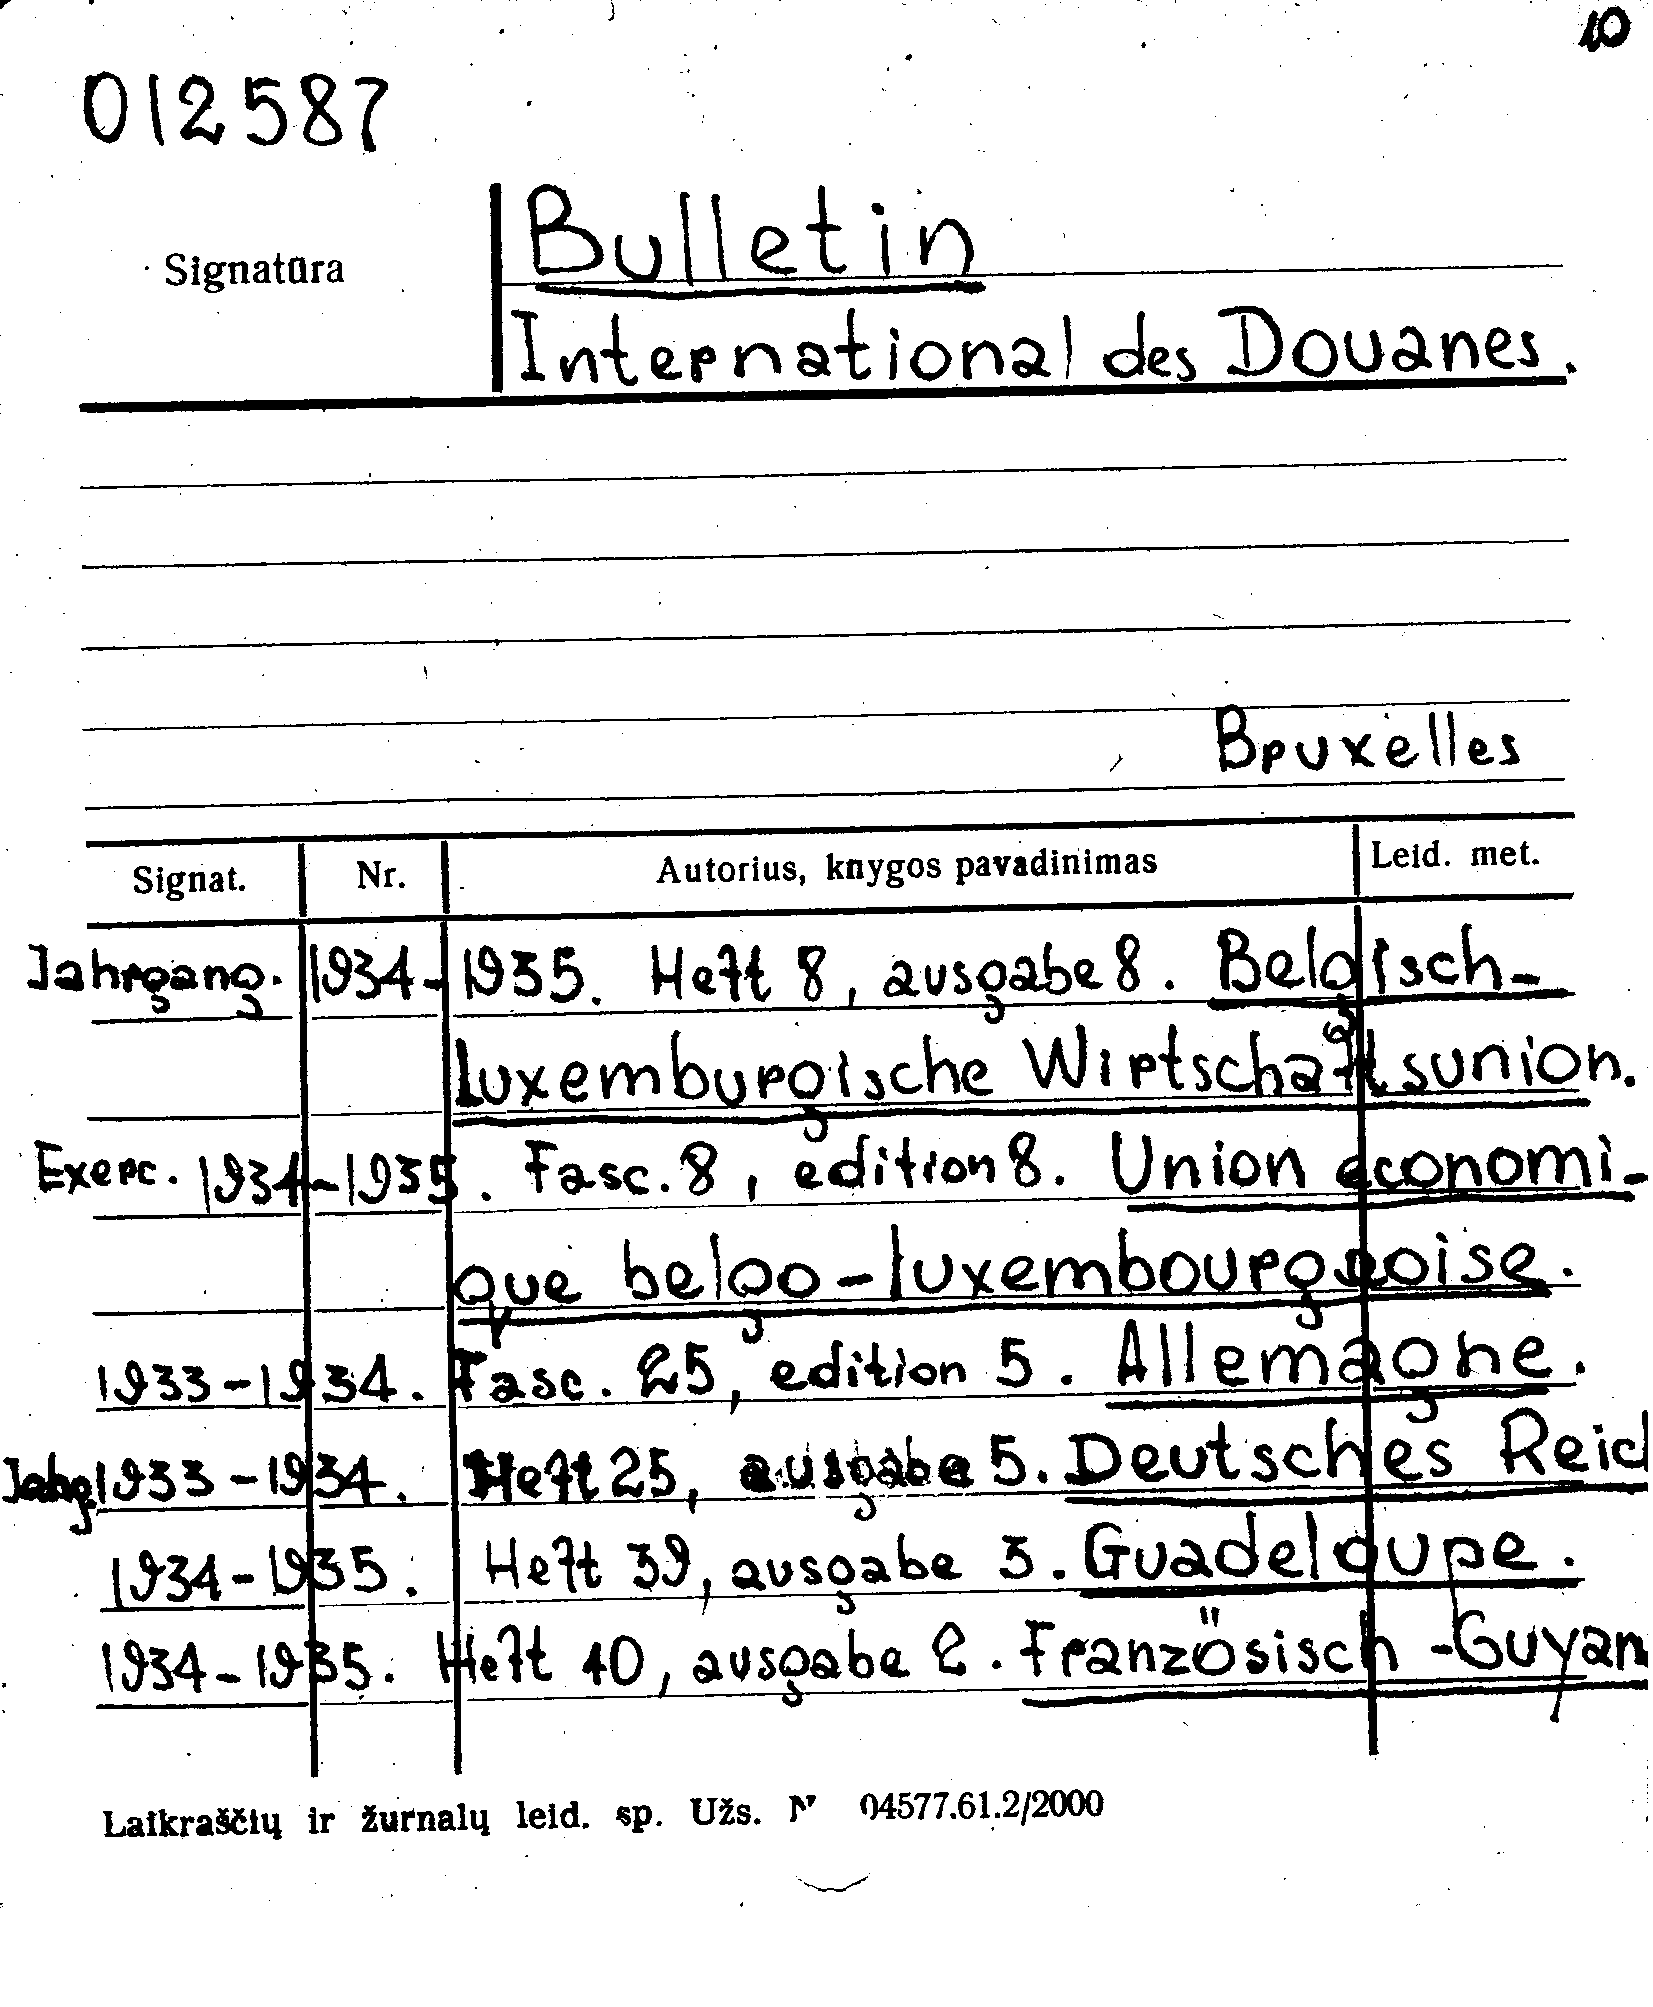 10
012587
Signatūra
Bulletin
International des Douanes.
Bruxelles
Signat. Nr. Autorius, knygos pavadinimas Leid. met.
Jahrgang. 1934-1935. Heft 8, ausgabe 8. Belgisch-
luxemburgische Wirtschaftsunion.
Exerc. 1934-1935. Fasc. 8, edition 8. Union economi-
que belgo-luxembourgeoise.
1933-1934. Fasc. 25, edition 5. Allemagne.
Jahg. 1933-1934. Heft 25, ausgabe 5. Deutsches Reich
1934-1935. Heft 39, ausgabe 3. Guadeloupe.
1934-1935. Heft 10, ausgabe 2. Französisch-Guyan
Laikraščių ir žurnalų leid. sp. Užs. N 04577.61.2/2000